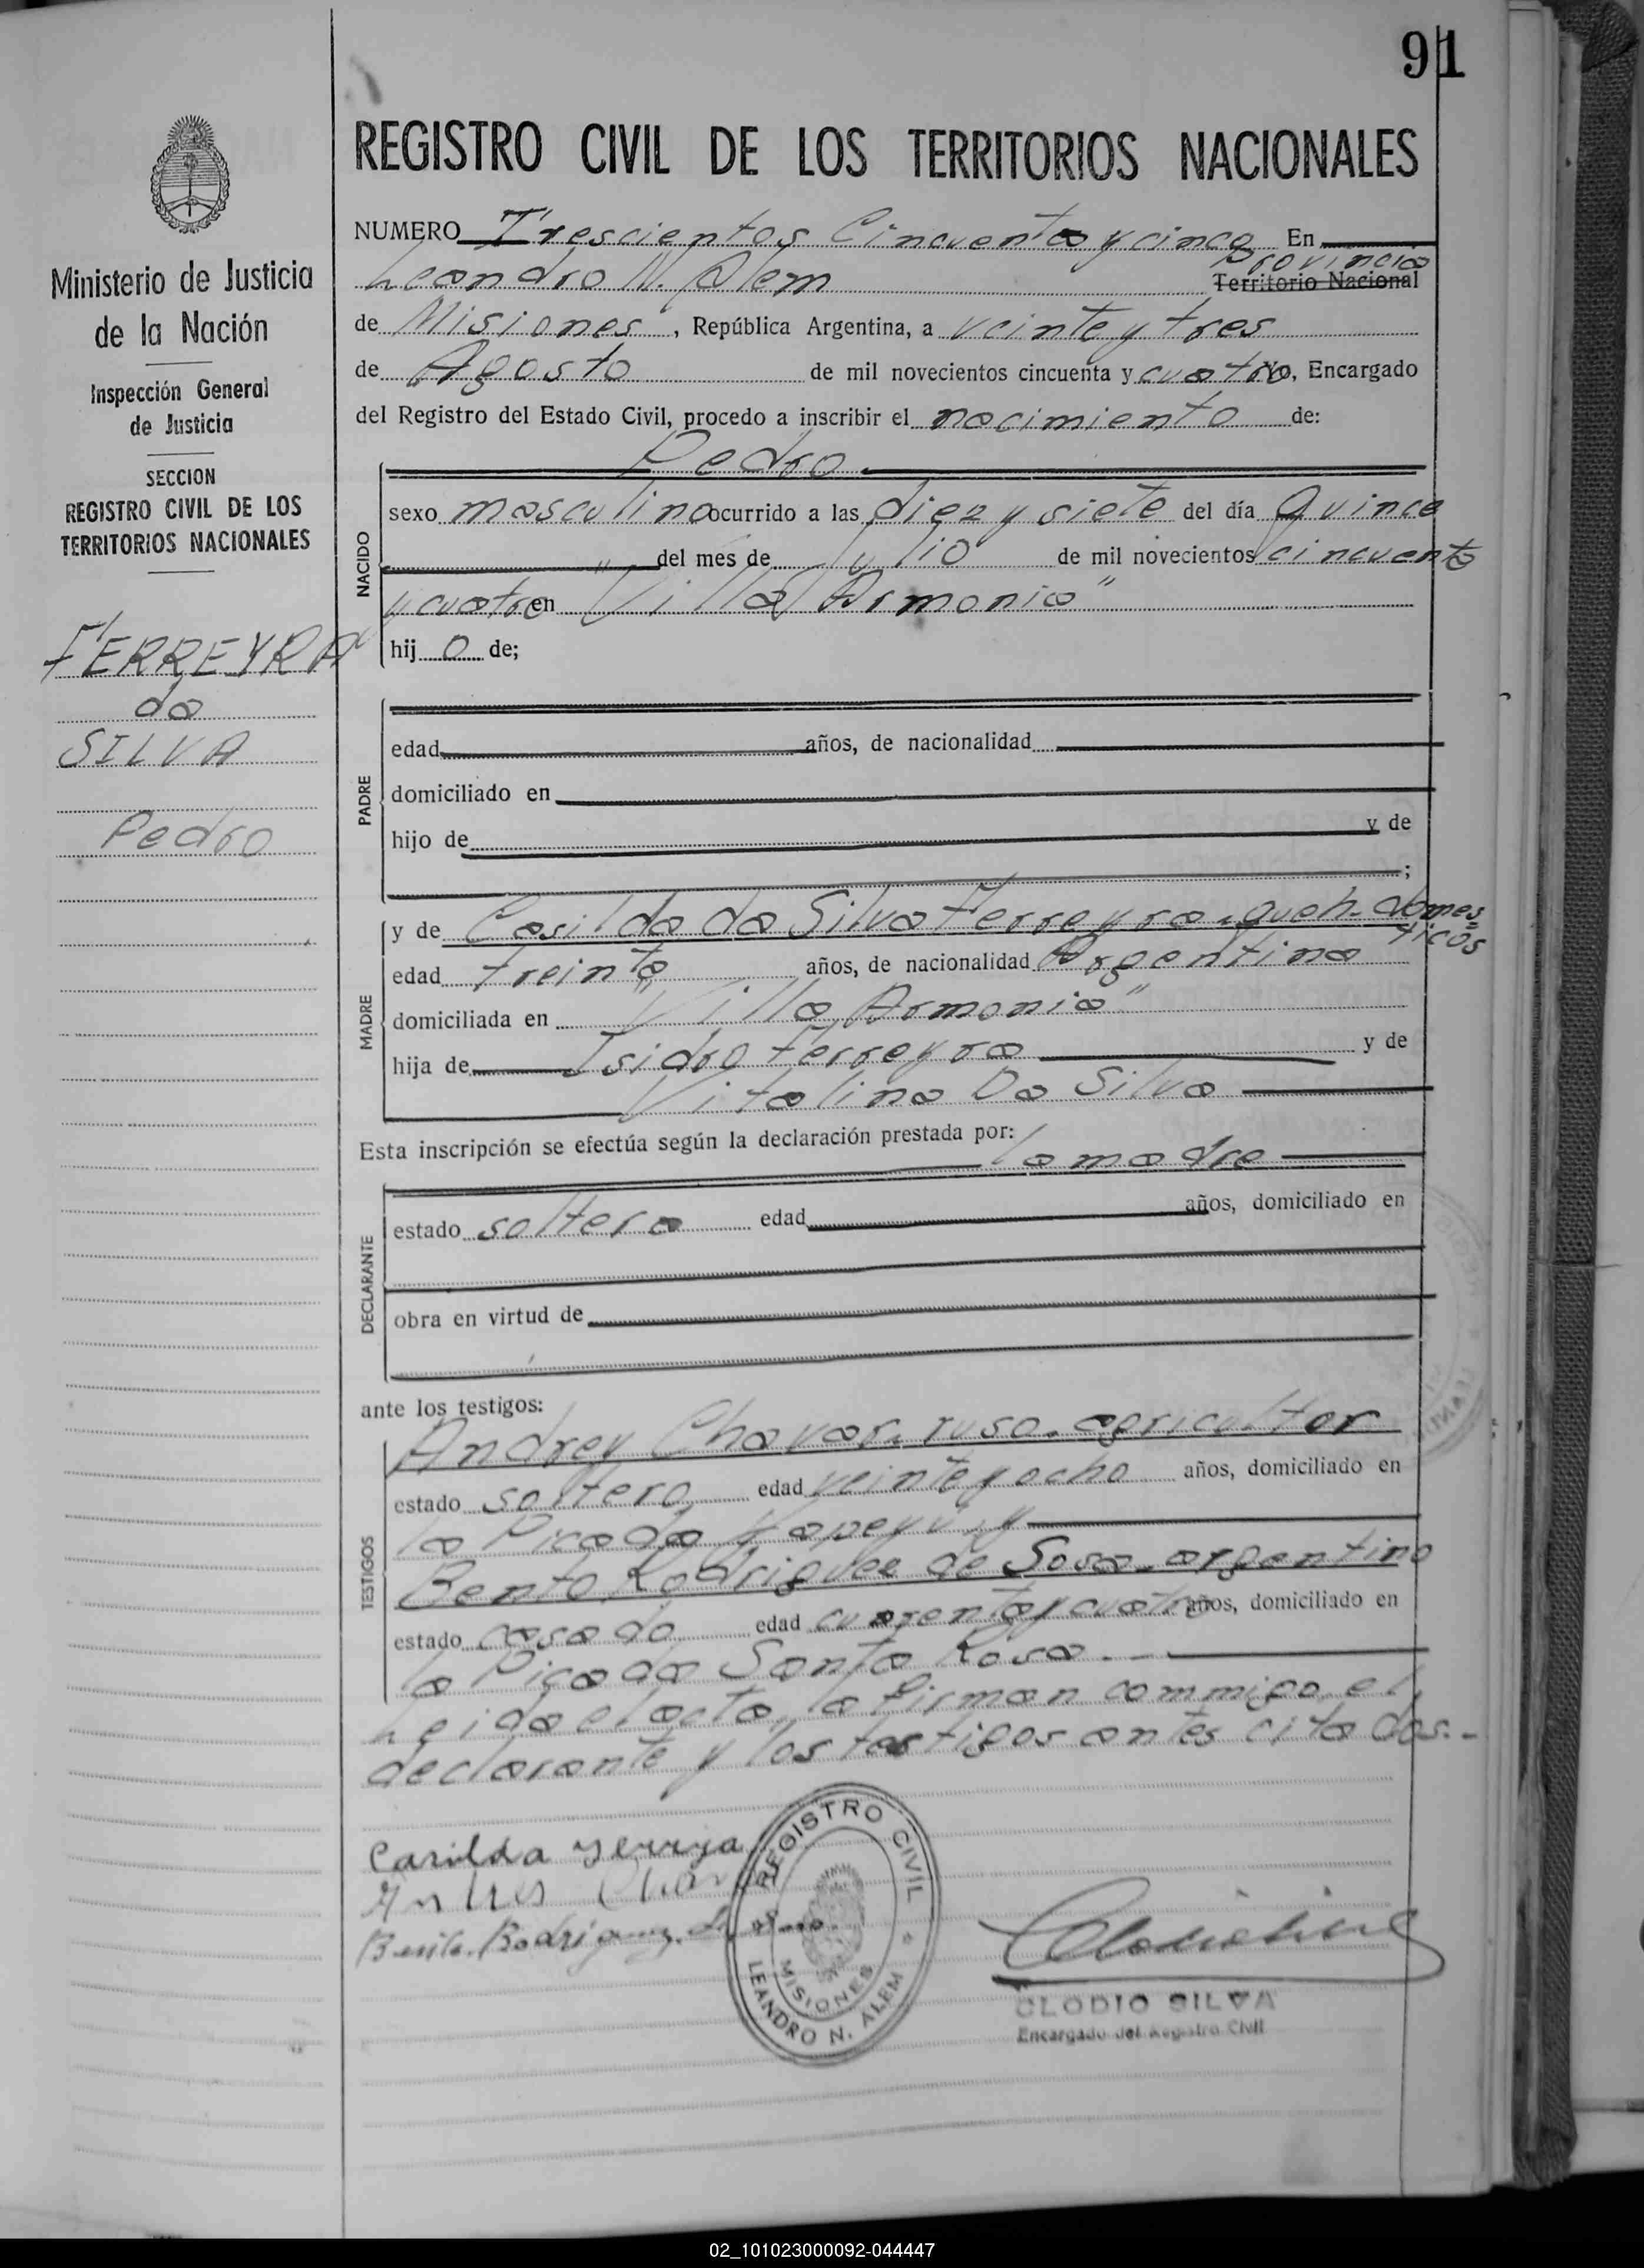 91
REGISTRO CIVIL DE LOS TERRITORIOS NACIONALES
Ministerio de Justicia
de la Nación
Inspección General
de Justicia
SECCION
REGISTRO CIVIL DE LOS
TERRITORIOS NACIONALES
FERREYRA
da
SILVA
Pedro
NUMERO Trescientos Cincuenta y cinco En
Leandro N. Alem Provincia Territorio Nacional
de Misiones, República Argentina, a veinte y tres
de Agosto de mil novecientos cincuenta y cuatro Yo, Encargado
del Registro del Estado Civil, procedo a inscribir el nacimiento de:
Pedro
NACIDO
sexo masculino ocurrido a las diez y siete del día Quince
del mes de Julio de mil novecientos cincuenta
y cuatro en "Villa Armonia"
hij o de;
PADRE
edad años, de nacionalidad
domiciliado en
hijo de y de
;
MADRE
y de Casilda da Silva Ferreyra - queh. domes
ticos
edad treinta años, de nacionalidad Argentina
domiciliada en "Villa Armonia"
hija de Isidro Ferreyra y de
Vitalina Da Silva
Esta inscripción se efectúa según la declaración prestada por:
la madre
DECLARANTE
estado soltera edad años, domiciliado en
obra en virtud de
ante los testigos:
TESTIGOS
Andrey Chavar. ruso. agricultor
estado soltero edad veinte y ocho años, domiciliado en
la Picada Yapeyú. y
Bento Rodriguez de Sosa - argentino
estado casado edad cuarenta y cuatro años, domiciliado en
la Picada Santa Rosa. -
Leida el acta, la firman commigo, el
declarante y los testigos antes citados. -
Casilda Ferryra
Bento Rodriguez de
REGISTRO CIVIL
MISIONES
LEANDRO N. ALEM
CLODIO SILVA
Encargado del Registro Civil
02_101023000092-044447